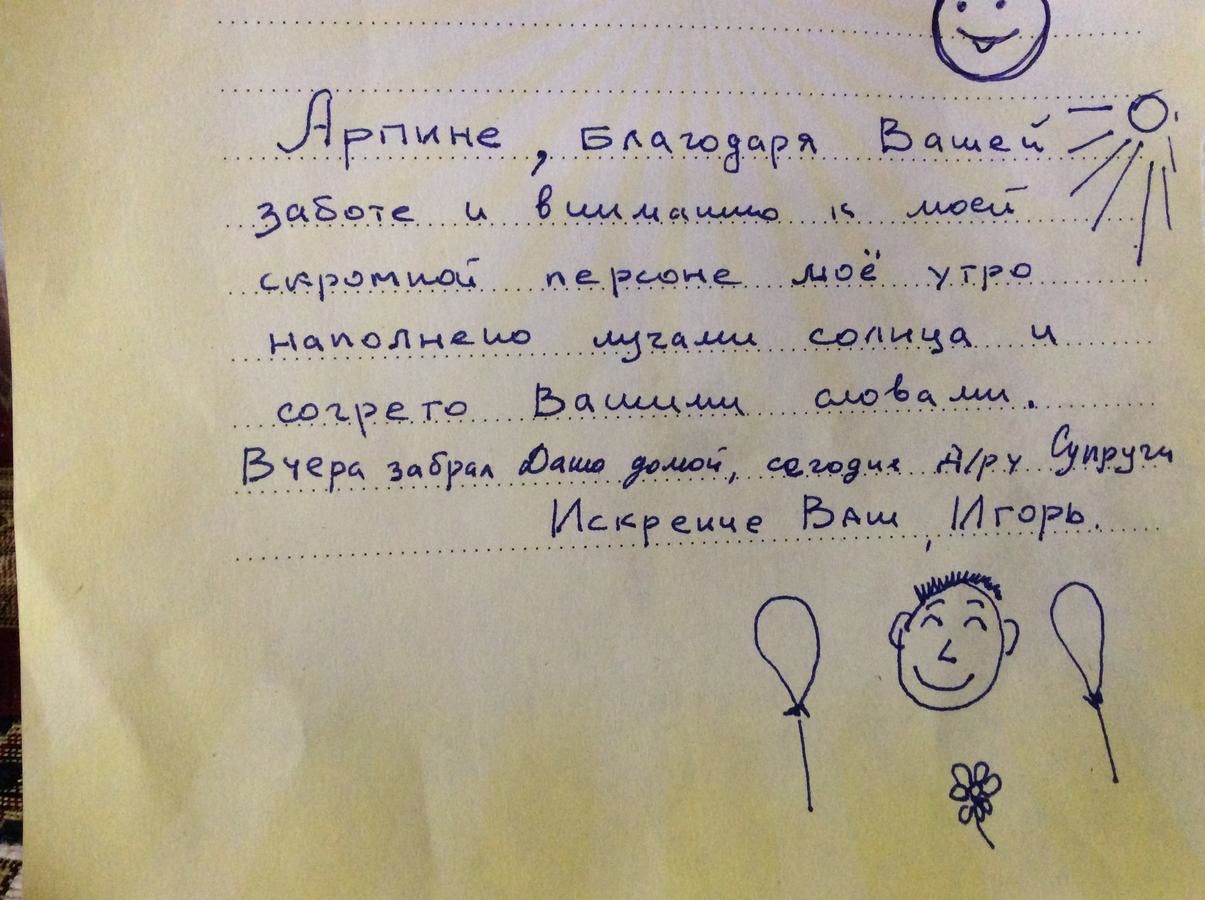 Арпине, Благодаря Вашей
заботе и вниманию к моей
скромной персоне моё утро
наполнено лучами солнца и
согрето Вашими словами.
Вчера забрал Дашо домой, сегодня Д/ру Супруги
Искренне Ваш, Игорь.